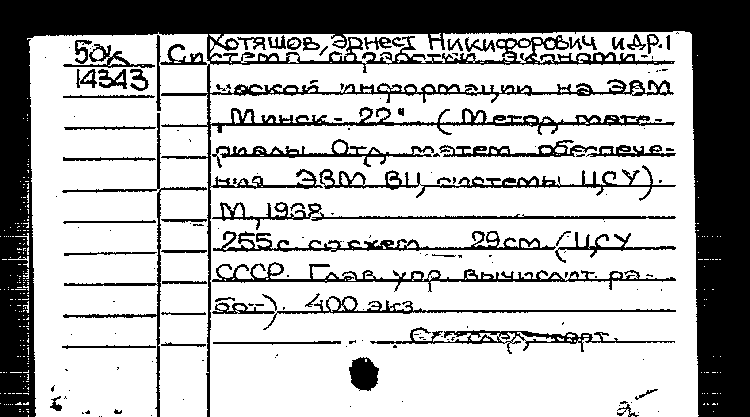 50к Хотяшов, Эрнест Никифорович и др.
14343 Система обработки экономи-
ческой информации на ЭВМ
„Минск-22". (Метод. мате-
риалы Отд. матем. обеспече-
ния ЭВМ ВЦ системы ЦСУ).
М., 1938.
255с. со схем. 29см. (ЦСУ
СССР. Глав. упр. вычислит. ра-
бот). 400 экз.
См. след. карт.